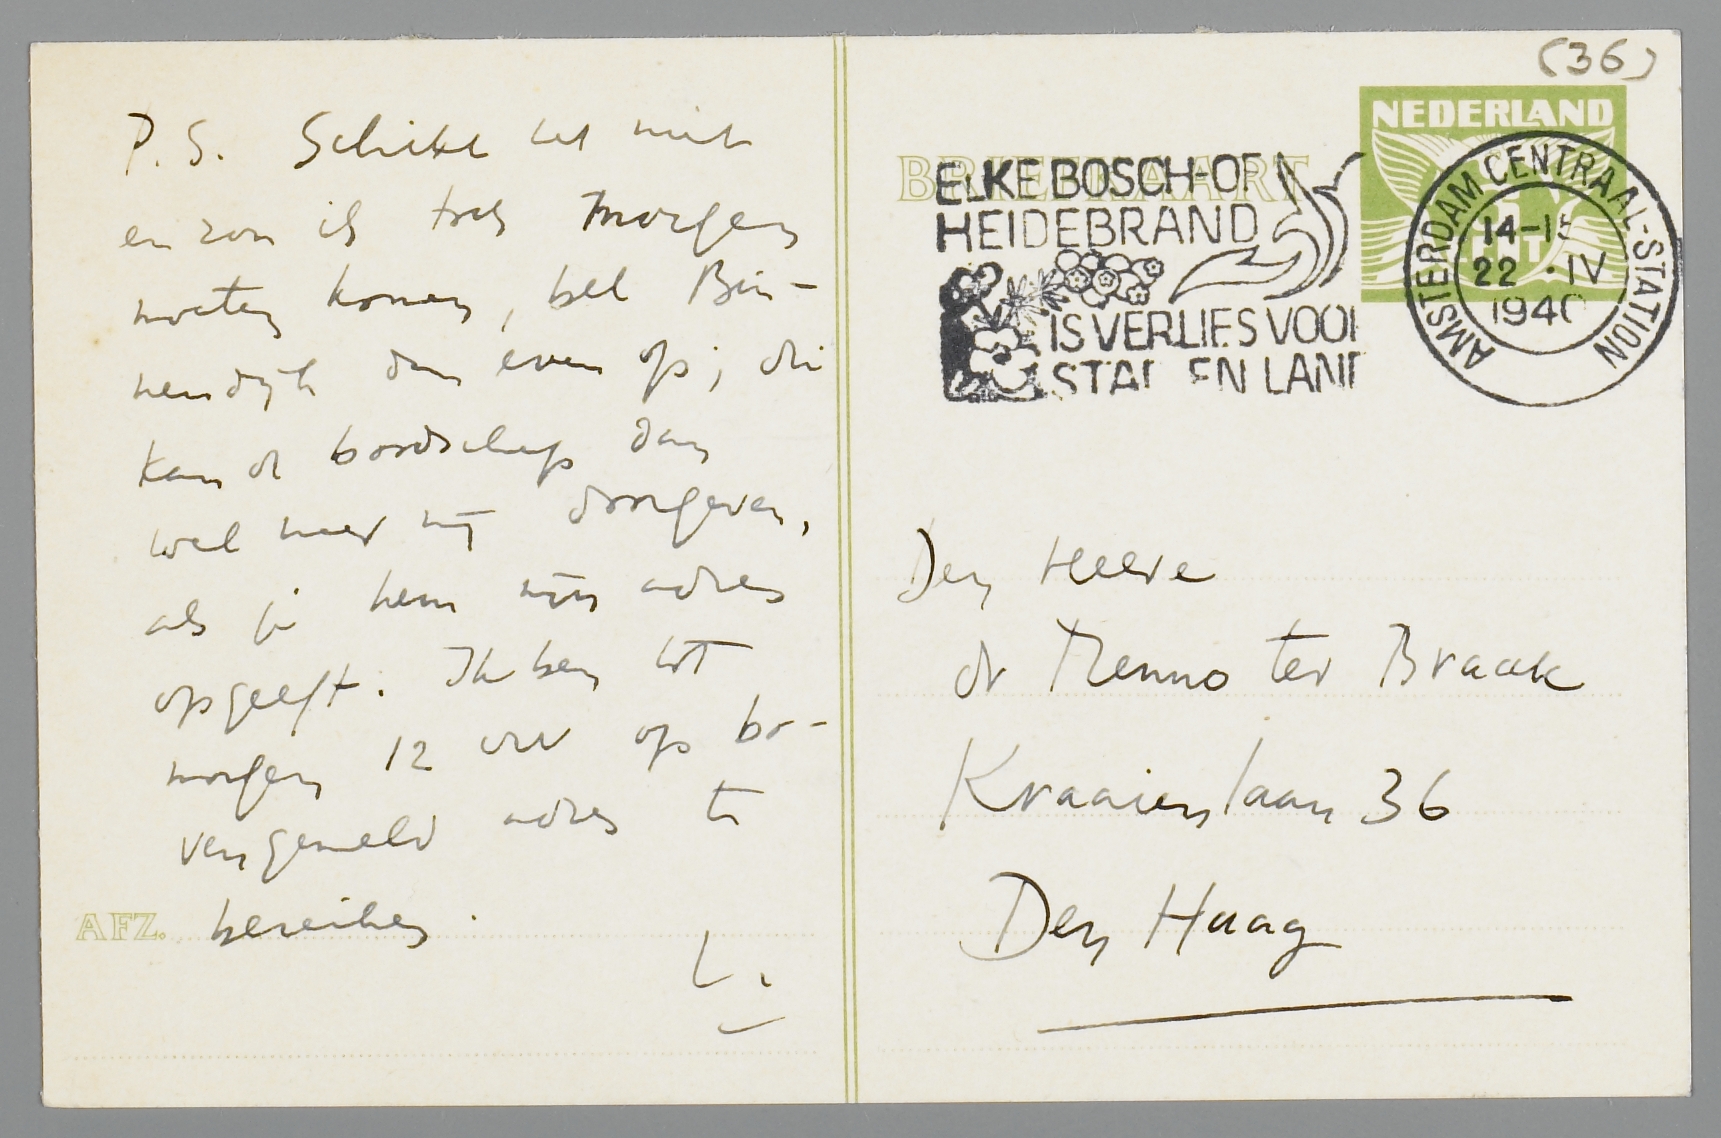 P.S. Schikt het niet
en zou ik toch morgen
moeten komen, bel Bin-
nendijk dan even op; die
kan de boodschap dan
wel weer mij doorgeven,
als je hem mijn adres
opgeeft. Ik ben tot
morgen 12 uur op bo-
vengemeld adres te
AFZ. bereiken.
L.
(36)
NEDERLAND
BRIEFKAART
ELKE BOSCH-OF
HEIDEBRAND
IS VERLIES VOOR
STAD EN LAND
AMSTERDAM CENTRAAL-STATION
14-15
22 . IV
1940
Den Heere
dr Menno ter Braak
Kraaienlaan 36
Den Haag